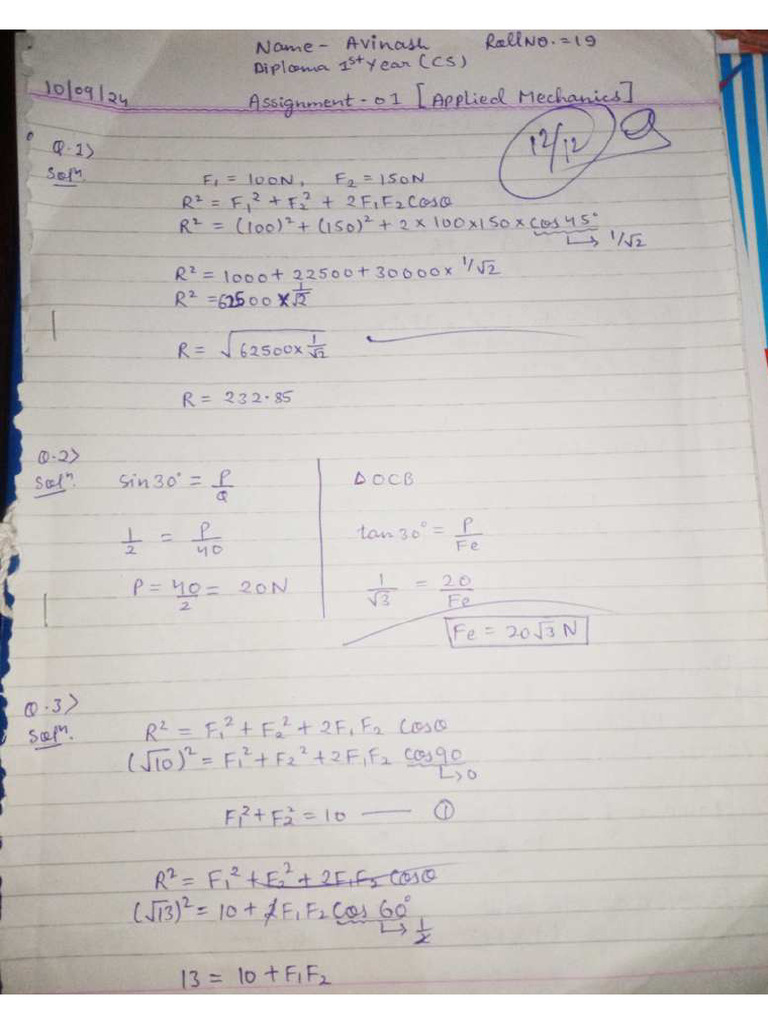 Name - Avinash Roll NO. = 19
Diploma 1st Year (CS)
10/09/24
Assignment - 01 [Applied Mechanics]
12/12
Q.1>
Solⁿ.
F₁ = 100N, F₂ = 150N
R² = F₁² + F₂² + 2F₁F₂ Cosθ
R² = (100)² + (150)² + 2 × 100 × 150 × cos 45°
↳ 1/√2
R² = 1000 + 22500 + 30000 × 1/√2
R² = 62500 × 1/√2
R = √62500 × 1/√2
R = 232.85
Q.2>
Solⁿ.
sin 30° = P/Q
1/2 = P/40
P = 40/2 = 20N
Δ OCB
tan 30° = P/Fe
1/√3 = 20/Fe
Fe = 20√3 N
Q.3>
Solⁿ.
R² = F₁² + F₂² + 2F₁F₂ Cosθ
(√10)² = F₁² + F₂² + 2F₁F₂ cos 90
↳ 0
F₁² + F₂² = 10 —— ①
R² = F₁² + F₂² + 2F₁F₂ Cosθ
(√13)² = 10 + 2F₁F₂ Cos 60°
↳ 1/2
13 = 10 + F₁F₂